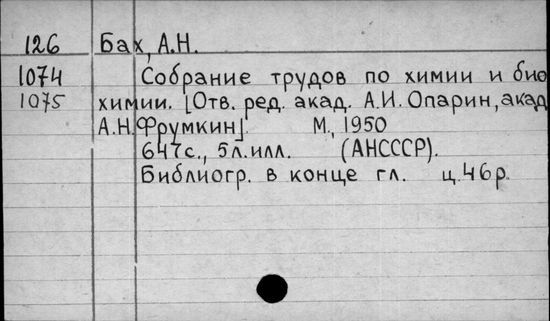 126 Бах, А.Н.
1074 Собрание трудов по химии и био
1075 химии. [Отв. ред. акад. А.И. Опарин, акад
А.Н.Фрумкин]. М., 1950
647с., 5л.илл. (АНСССР).
Библиогр. в конце гл. ц.46р.